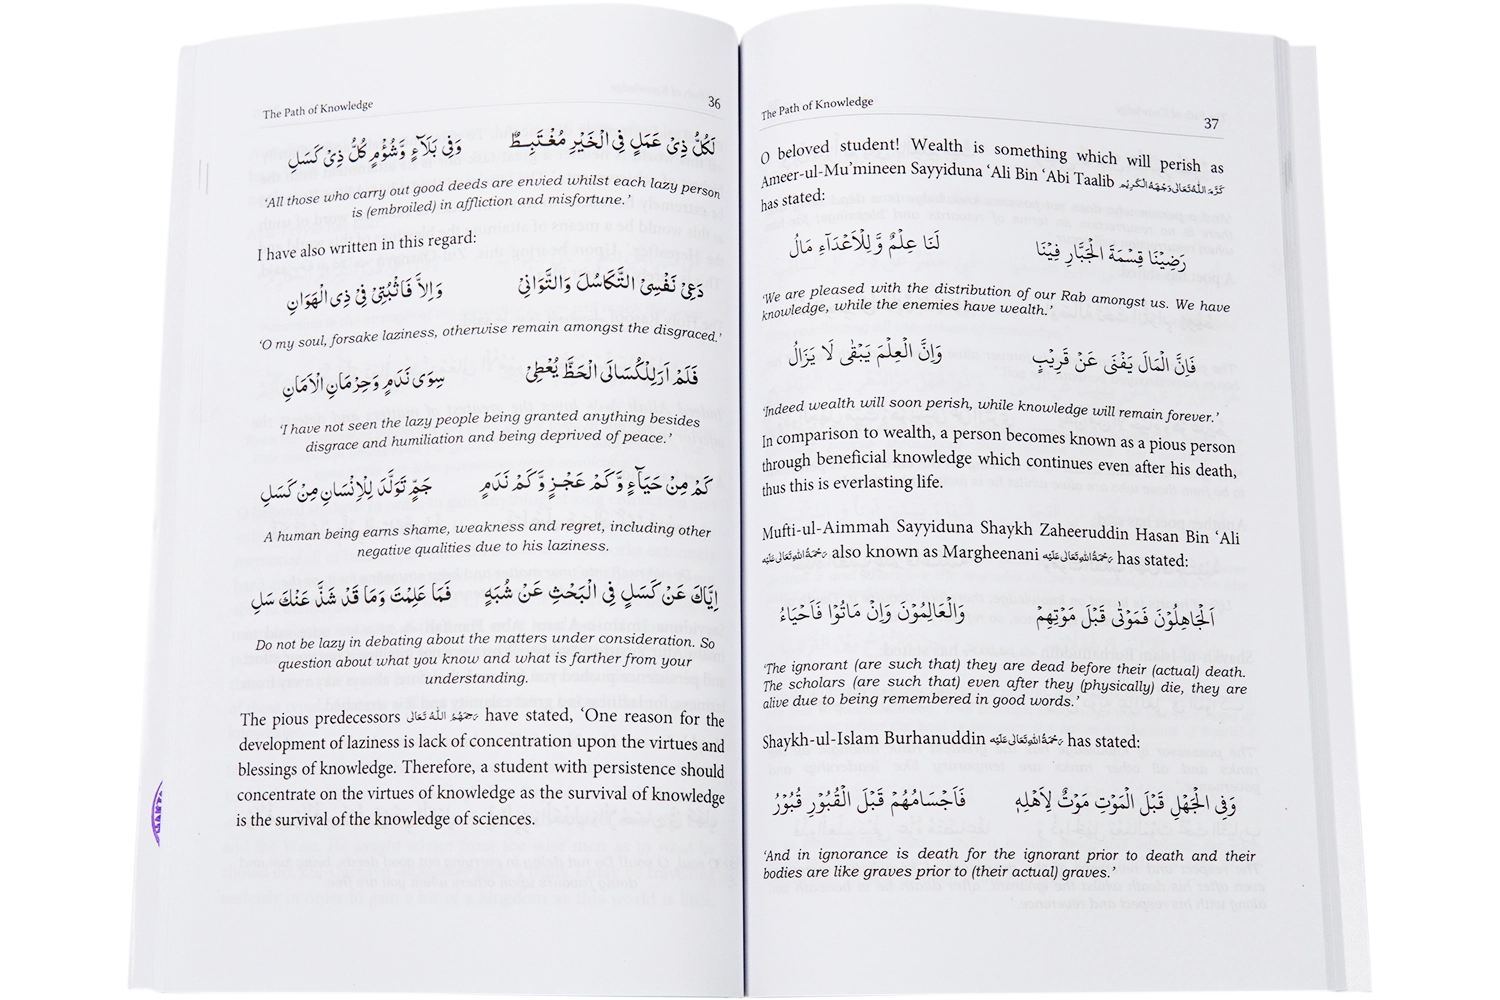 The Path of Knowledge 36
لَكُلُّ ذِیْ عَمَلٍ فِی الْخَیْرِ مُغْتَبِطٌ وَفِیْ بَلَآءٍ وَّشُؤْمٍ كُلُّ ذِیْ كَسَلِ
‘All those who carry out good deeds are envied whilst each lazy person
is (embroiled) in affliction and misfortune.’
I have also written in this regard:
دَعِیْ نَفْسِیْ التَّكَاسُلَ وَالتَّوَانِیْ وَاِلاَّ فَاثْبُتِیْ فِیْ ذِی الْهَوَانِ
‘O my soul, forsake laziness, otherwise remain amongst the disgraced.’
فَلَمْ اَرَلِلْكُسَالَی الْحَظَّ یُعْطِیْ سِوَی نَدَمٍ وَحِرْمَانِ الْاَمَانِ
‘I have not seen the lazy people being granted anything besides
disgrace and humiliation and being deprived of peace.’
كَمْ مِنْ حَیَآءٍ وَّكَمْ عَجْزٍ وَّكَمْ نَدَمٍ جَمٍّ تَوَلَّدَ لِلْاِنْسَانِ مِنْ كَسَلِ
A human being earns shame, weakness and regret, including other
negative qualities due to his laziness.
اِیَّاكَ عَنْ كَسَلٍ فِی الْبَحْثِ عَنْ شُبَهٍ فَمَا عَلِمْتَ وَمَا قَدْ شَذَّ عَنْكَ سَلِ
Do not be lazy in debating about the matters under consideration. So
question about what you know and what is farther from your
understanding.
The pious predecessors رَحِمَهُمُ اللّٰهُ تَعَالٰی have stated, ‘One reason for the
development of laziness is lack of concentration upon the virtues and
blessings of knowledge. Therefore, a student with persistence should
concentrate on the virtues of knowledge as the survival of knowledge
is the survival of the knowledge of sciences.
The Path of Knowledge 37
O beloved student! Wealth is something which will perish as
Ameer-ul-Mu’mineen Sayyiduna ‘Ali Bin ‘Abi Taalib كَرَّمَ اللّٰهُ تَعَالٰی وَجْهَهُ الْكَرِیْم
has stated:
رَضِیْنَا قِسْمَةَ الْجَبَّارِ فِیْنَا لَنَا عِلْمٌ وَّلِلْاَعْدَآءِ مَالُ
‘We are pleased with the distribution of our Rab amongst us. We have
knowledge, while the enemies have wealth.’
فَاِنَّ الْمَالَ یَفْنَی عَنْ قَرِیْبٍ وَاِنَّ الْعِلْمَ یَبْقٰی لَا یَزَالُ
‘Indeed wealth will soon perish, while knowledge will remain forever.’
In comparison to wealth, a person becomes known as a pious person
through beneficial knowledge which continues even after his death,
thus this is everlasting life.
Mufti-ul-Aimmah Sayyiduna Shaykh Zaheeruddin Hasan Bin ‘Ali
رَحْمَةُ اللّٰهِ تَعَالٰی عَلَیْه also known as Margheenani رَحْمَةُ اللّٰهِ تَعَالٰی عَلَیْه has stated:
اَلْجَاهِلُوْنَ فَمَوْتٰی قَبْلَ مَوْتِهِمْ وَالْعَالِمُوْنَ وَاِنْ مَاتُوْا فَاَحْیَاءُ
‘The ignorant (are such that) they are dead before their (actual) death.
The scholars (are such that) even after they (physically) die, they are
alive due to being remembered in good words.’
Shaykh-ul-Islam Burhanuddin رَحْمَةُ اللّٰهِ تَعَالٰی عَلَیْه has stated:
وَفِی الْجَهْلِ قَبْلَ الْمَوْتِ مَوْتٌ لِاَهْلِهٖ فَاَجْسَامُهُمْ قَبْلَ الْقُبُوْرِ قُبُوْرُ
‘And in ignorance is death for the ignorant prior to death and their
bodies are like graves prior to (their actual) graves.’